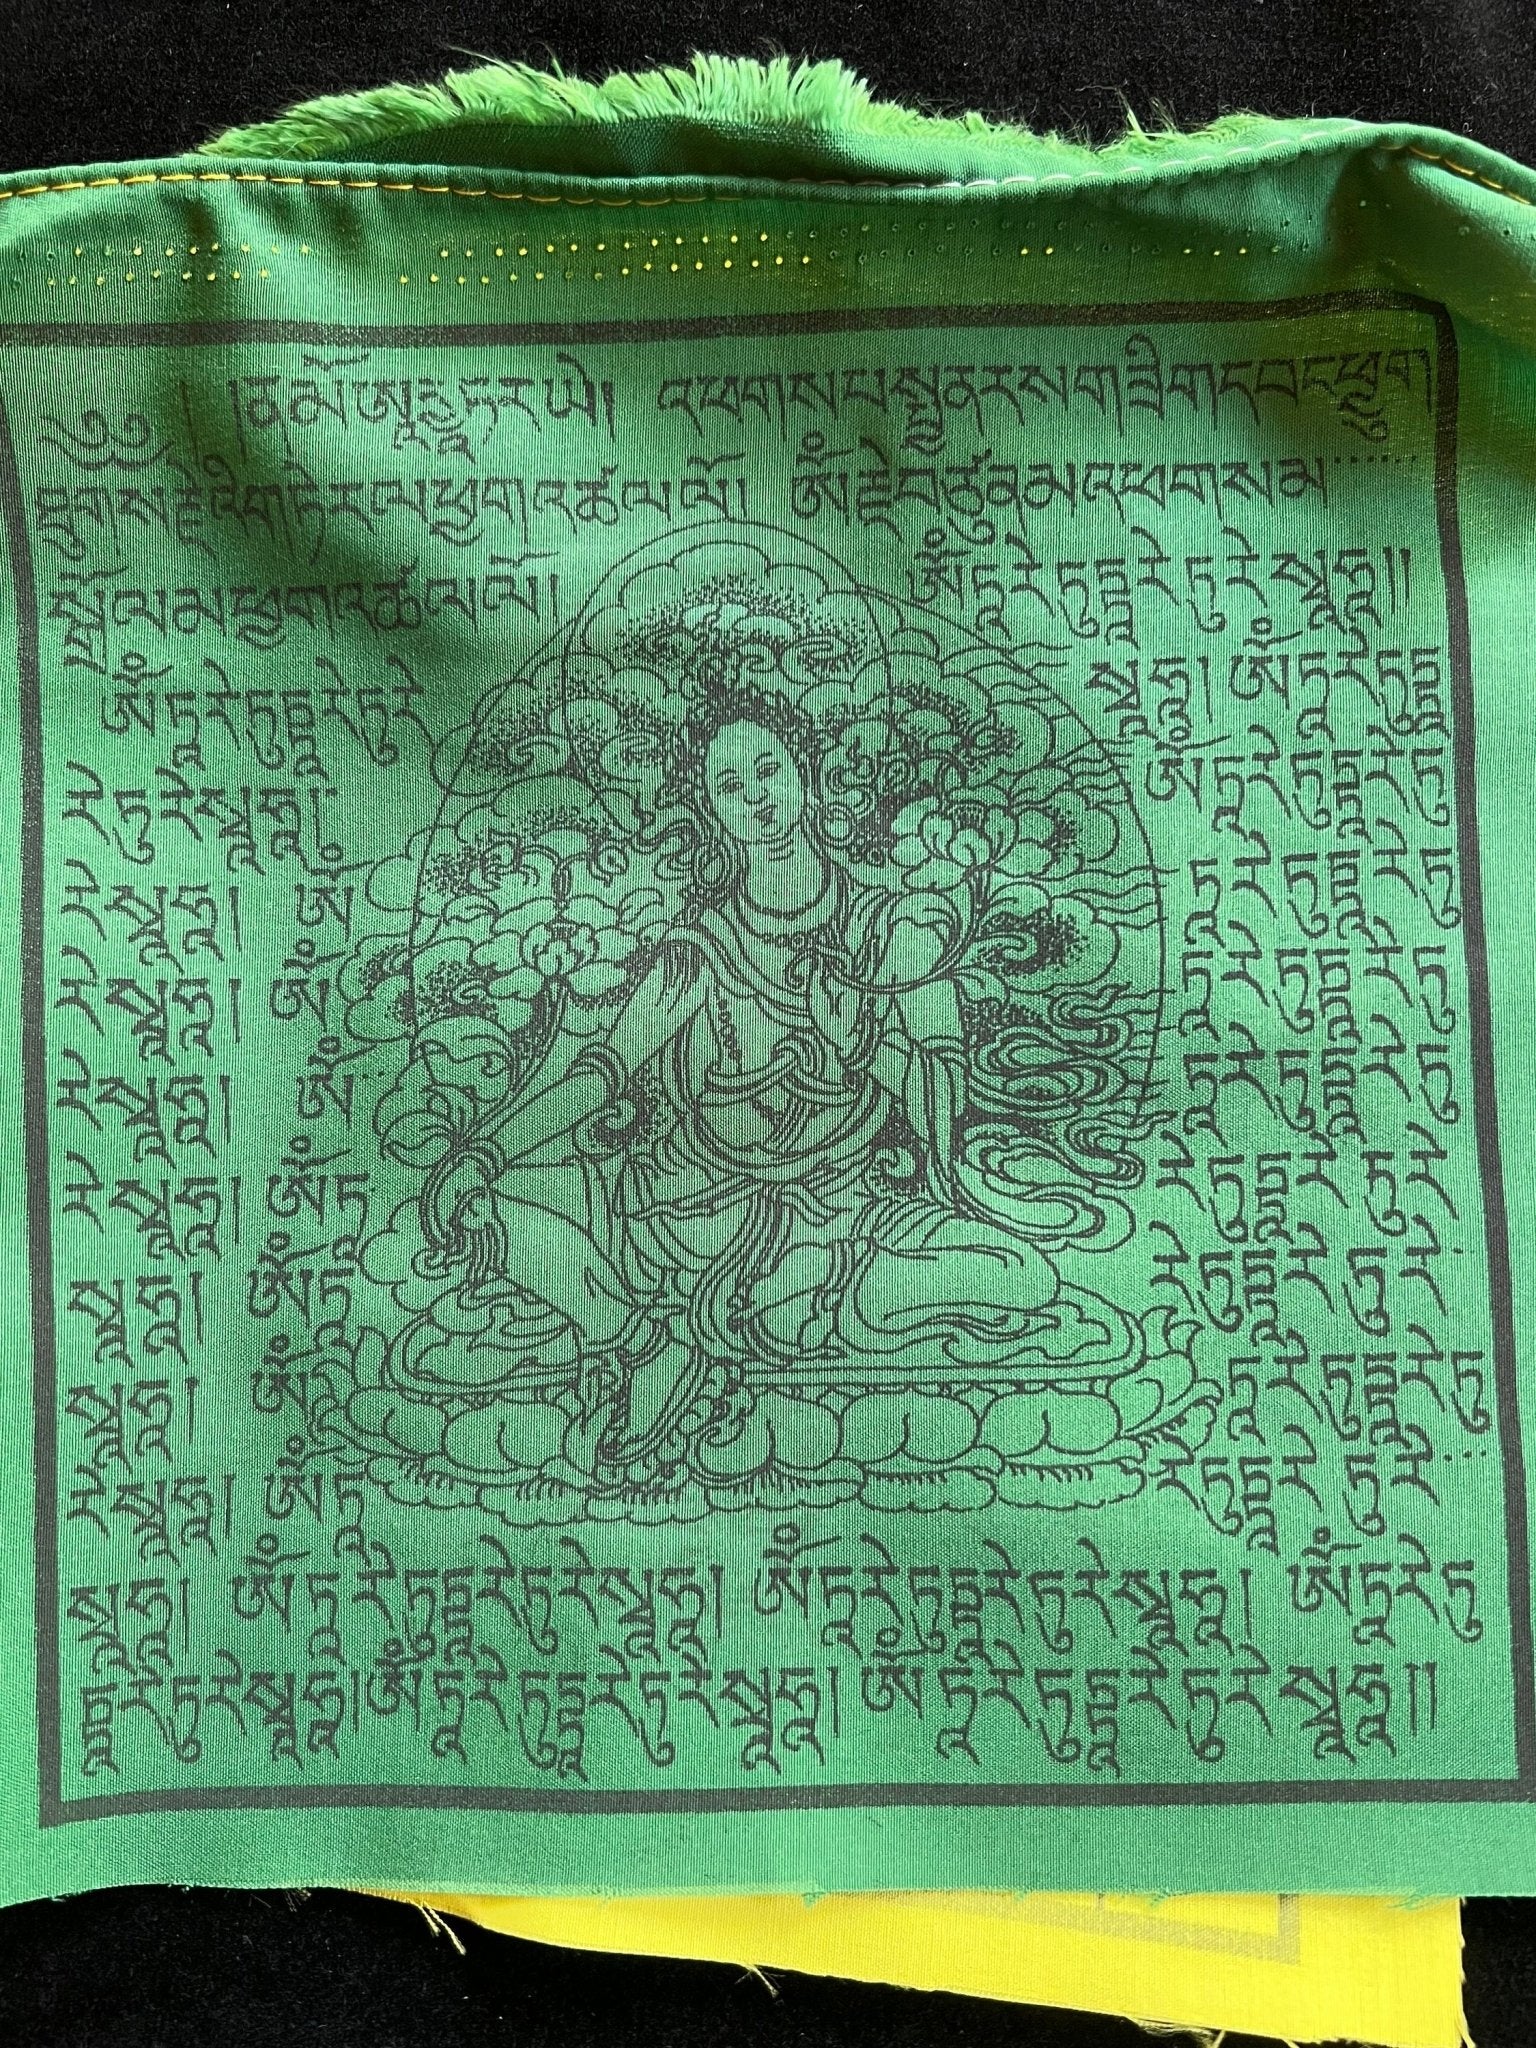 ༄༅། །ན་མོ་ཨཱརྱ་ཏཱ་ར་ཡེ། འཕགས་པ་སྤྱན་རས་གཟིགས་དབང་ཕྱུག
ལ་ཕྱག་འཚལ་ལོ། ཨོཾ་རྗེ་བཙུན་མ་འཕགས་མ
སྒྲོལ་མ་ཕྱག་འཚལ་ལོ། ཨོཾ་ཏཱ་རེ་ཏུཏྟཱ་རེ་ཏུ་རེ་སྭཱ་ཧཱ།།
ཨོཾ་ཏཱ་རེ་ཏུཏྟཱ་རེ་ཏུ་རེ སྭཱ་ཧཱ། ཨོཾ་ཏཱ་རེ་ཏུཏྟཱ
རེ་ཏུ་རེ་སྭཱ་ཧཱ། ཨོཾ་ཏཱ་རེ་ཏུཏྟཱ་རེ་ཏུ
རེ་སྭཱ་ཧཱ། ཨོཾ ཏཱ་རེ་ཏུཏྟཱ་རེ་ཏུ
རེ་སྭཱ་ཧཱ། ཨོཾ ཏཱ་རེ་ཏུཏྟཱ་རེ་ཏུ
རེ་སྭཱ་ཧཱ། ཨོཾ ཏཱ་རེ་ཏུཏྟཱ་རེ་ཏུ
རེ་སྭཱ་ཧཱ། ཨོཾ་ཏཱ རེ་ཏུཏྟཱ་རེ་ཏུ་རེ
སྭཱ་ཧཱ། ཨོཾ་ཏཱ རེ་ཏུཏྟཱ་རེ་ཏུ་རེ
སྭཱ་ཧཱ། ཨོཾ ཏཱ་རེ་ཏུཏྟཱ་རེ་ཏུ
རེ་སྭཱ་ཧཱ། ཨོཾ་ཏཱ རེ་ཏུཏྟཱ་རེ་ཏུ་རེ
སྭཱ་ཧཱ། ཨོཾ་ཏཱ་རེ་ཏུཏྟཱ་རེ་ཏུ་རེ་སྭཱ་ཧཱ། ཨོཾ་ཏཱ་རེ་ཏུཏྟཱ་རེ་ཏུ་རེ་སྭཱ་ཧཱ། ཨོཾ་ཏཱ་རེ་ཏུ
ཏྟཱ་རེ་ཏུ་རེ་སྭཱ་ཧཱ། ཨོཾ་ཏཱ་རེ་ཏུཏྟཱ་རེ་ཏུ་རེ་སྭཱ་ཧཱ། ཨོཾ་ཏཱ་རེ་ཏུཏྟཱ་རེ་ཏུ་རེ་སྭཱ་ཧཱ།།